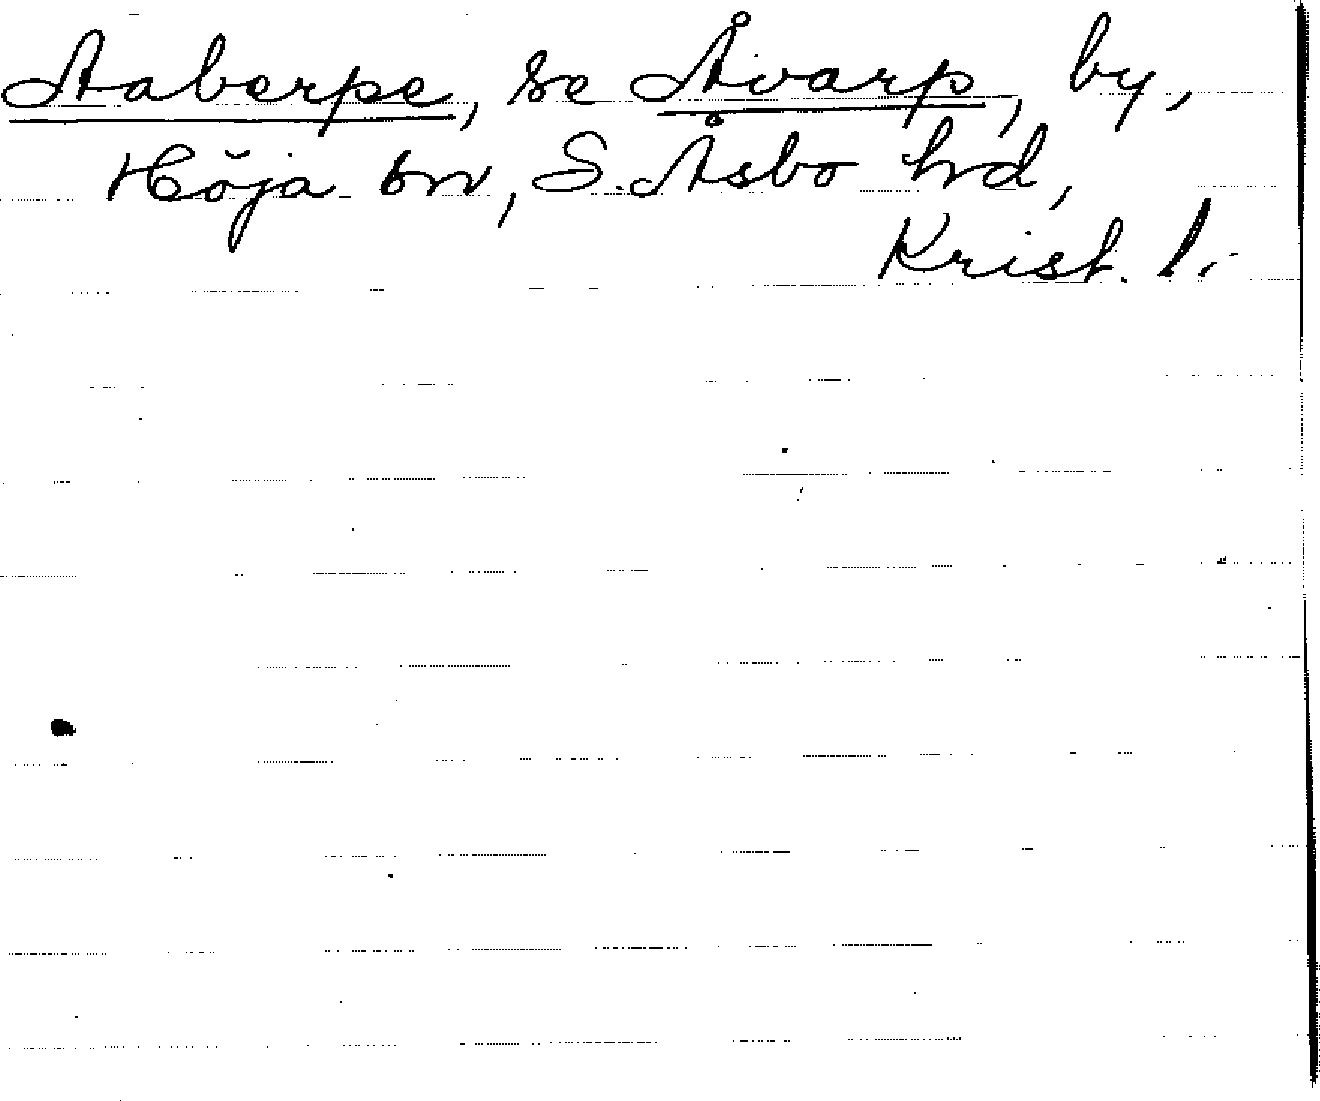 Aaberpe, se Åvarp, by,
Höja sn, S. Åsbo hd,
Krist. l.